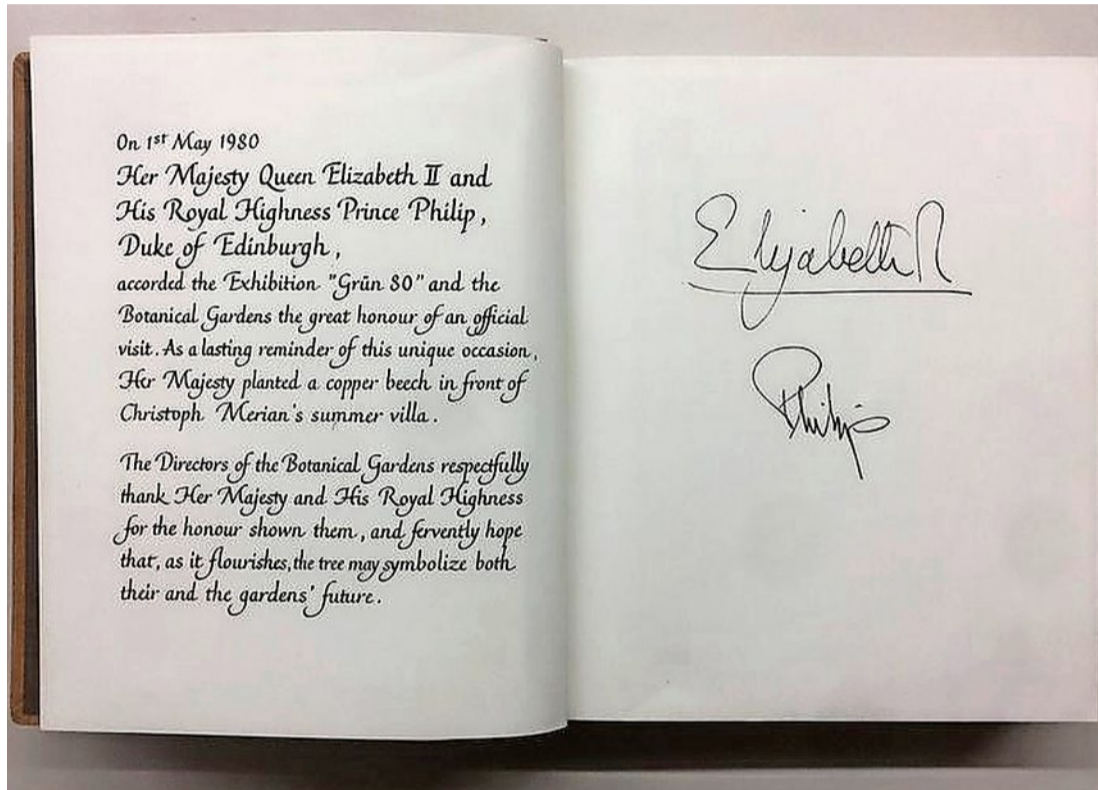 On 1st May 1980
Her Majesty Queen Elizabeth II and
His Royal Highness Prince Philip,
Duke of Edinburgh,
accorded the Exhibition "Grün 80" and the
Botanical Gardens the great honour of an official
visit. As a lasting reminder of this unique occasion,
Her Majesty planted a copper beech in front of
Christoph Merian's summer villa.
The Directors of the Botanical Gardens respectfully
thank Her Majesty and His Royal Highness
for the honour shown them, and fervently hope
that, as it flourishes, the tree may symbolize both
their and the gardens' future.
Elizabeth R
Philip